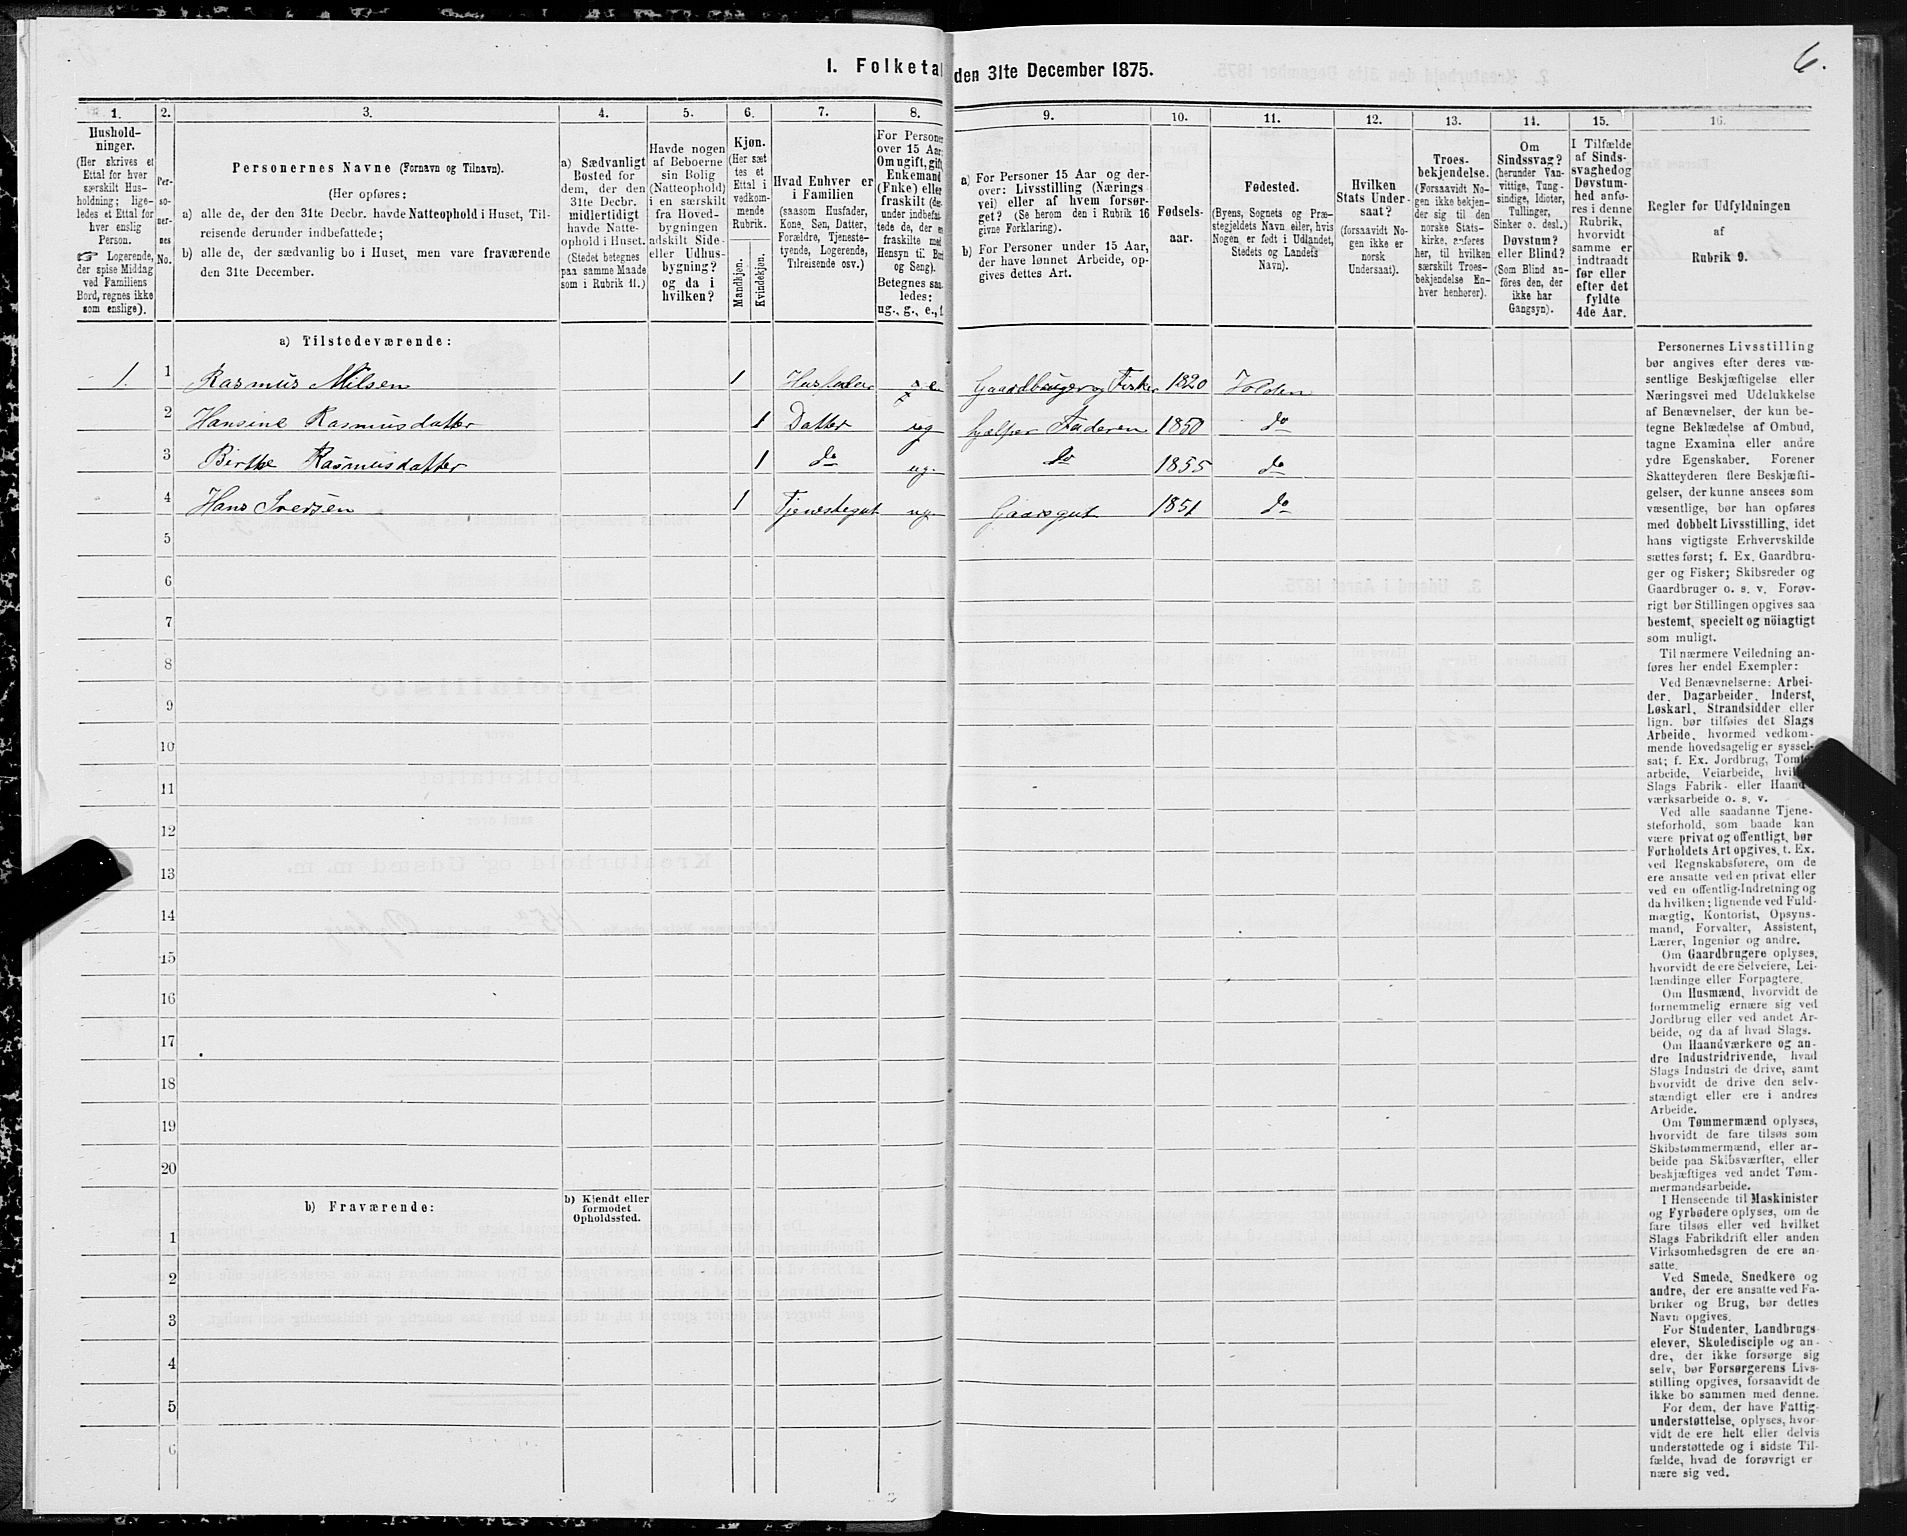 6.
I. Folketal den 31te December 1875.
1.
2.
3.
4.
5.
6.
7.
8.
9.
10.
11.
12.
13.
14.
15.
16.
Hushold-
ninger.
(Her skrives et
Ettal for hver
særskilt Hus-
holdning; lige-
ledes et Ettal for
hver enslig
Person.
Logerende,
der spise Middag
ved Familiens
Bord, regnes ikke
som enslige).
Per-
so-
ner-
nes
No.
Personernes Navne (Fornavn og Tilnavn).
(Her opføres:
a) alle de, der den 31te Decbr. havde Natteophold i Huset, Til-
reisende derunder indbefattede;
b) alle de, der sædvanlig bo i Huset, men vare fraværende
den 31te December.
a) Sædvanligt
Bosted for
dem, der den
31te Decbr.
midlertidigt
havde Natte-
ophold i Huset.
(Stedet betegnes
paa samme Maade
som i Rubrik 11.)
Havde nogen
af Beboerne
sin Bolig
(Natteophold)
i en særskilt
fra Hoved-
bygningen
adskilt Side-
eller Udhus-
bygning?
og da i
hvilken?
Kjøn.
(Her sæt
tes et
Ettal i
vedkom-
mende
Rubrik.
Mandkjøn.
Kvindekjøn.
Hvad Enhver er
i Familien
(saasom Husfader,
Kone, Søn, Datter,
Forældre, Tjeneste-
tyende, Logerende,
Tilreisende osv.)
For Personer
over 15 Aar:
Om ugift, gift
Enkemand
(Enke) eller
fraskilt (der-
under indbefat-
tede de, der ere
fraskilte med
Hensyn til Bord
og Seng).
Betegnes saa-
ledes:
ug., g., e., f.
a) For Personer 15 Aar og der-
over: Livsstilling (Nærings
vei) eller af hvem forsør-
get? (Se herom den i Rubrik 16
givne Forklaring).
b) For Personer under 15 Aar,
der have lønnet Arbeide, op-
gives dettes Art.
Fødsels-
aar.
Fødested.
(Byens, Sognets og Præ-
stegjeldets Navn eller, hvis
Nogen er født i Udlandet,
Stedets og Landets
Navn).
Hvilken
Stats Under-
saat?
(forsaavidt No-
gen ikke er
norsk
Undersaat).
Troes-
bekjendelse.
(Forsaavidt No-
gen ikke bekjen-
der sig til den
norske Stats-
kirke, anføres
her, til hvilken
særskilt Troes-
bekjendelse En-
hver henhører).
Om
Sindssvag?
(herunder Van-
vittige, Tung-
sindige, Idioter,
Tullinger,
Sinker o. desl.)
Døvstum?
eller Blind?
(Som Blind an-
føres den, der
ikke har
Gangsyn).
I Tilfælde
af Sinds-
svaghed og
Døvstum-
hed anfø-
res i denne
Rubrik,
hvorvidt
samme er
indtraadt
før eller
efter det
fyldte
4de Aar.
Regler for Udfyldningen
af
Rubrik 9.
a) Tilstedeværende:
1. 1 Rasmus Nilsen 1 Husfader e Gaardbruger og Fisker 1820 Volden
2 Hansine Rasmusdatter 1 Datter ug hjælper Faderen 1850 do
3 Birthe Rasmusdatter 1 do ug. do 1855 do
4 Hans Iversen 1 Tjenestegut ug Gaardsgut 1851 do
5
6
7
8
9
10
11
12
13
14
15
16
17
18
19
20
b) Fraværende:
b) Kjendt eller
formodet
Opholdssted.
1
2
3
4
5
6
Personernes Livsstilling
bør angives efter deres væ-
sentlige Beskjæftigelse eller
Næringsvei med Udelukkelse
af Benævnelser, der kun be-
tegne Beklædelse af Ombud,
tagne Examina eller andre
ydre Egenskaber. Forener
Skatteyderen flere Beskjæfti-
gelser, der kunne ansees som
væsentlige, bør han opføres
med dobbelt Livsstilling, idet
hans vigtigste Erhvervskilde
sættes først; f. Ex. Gaardbru-
ger og Fisker; Skibsreder og
Gaardbruger o. s. v. Forøv-
rigt bør Stillingen opgives saa
bestemt, specielt og nöiagtigt
som muligt.
Til nærmere Veiledning an-
føres her endel Exempler:
Ved Benævnelserne: Arbei-
der, Dagarbeider, Inderst,
Løskarl, Strandsidder eller
lign. bør tilføies det Slags
Arbeide, hvormed vedkom-
mende hovedsagelig er syssel-
sat; f. Ex. Jordbrug, Tomte-
arbeide, Veiarbeide, hvilket
Slags Fabrik- eller Haand-
værksarbeide o. s. v.
Ved alle saadanne Tjene-
steforhold, som baade kan
være privat og offentligt, bør
Forholdets Art opgives, t. Ex.
ved Regnskabsførere, om de
ere ansatte ved en privat eller
ved en offentlig Indretning og
da hvilken; lignende ved Fuld-
mægtig, Kontorist, Opsyns-
mand, Forvalter, Assistent,
Lærer, Ingeniør og andre.
Om Gaardbrugere oplyses,
hvorvidt de ere Selveiere, Lei-
lændinge eller Forpagtere.
Om Husmænd, hvorvidt de
fornemmelig ernære sig ved
Jordbrug eller ved andet Ar-
beide, og da af hvad Slags.
Om Haandværkere og an-
dre Industridrivende, hvad
Slags Industri de drive, samt
hvorvidt de drive den selv-
stændigt eller ere i andres
Arbeide.
Om Tømmermænd oplyses,
hvorvidt de fare tilsøs som
Skibstømmermænd, eller ar-
beide paa Skibsværfter, eller
beskjæftiges ved andet Tøm-
mermandsarbeide.
I Henseende til Maskinister
og Fyrbødere oplyses, om de
fare tilsøs eller ved hvilket
Slags Fabrikdrift eller anden
Virksomhedsgren de ere an-
satte.
Ved Smede, Snedkere og
andre, der ere ansatte ved Fa-
briker og Brug, bør dettes
Navn opgives.
For Studenter, Landbrugs-
elever, Skoledisciple og an-
dre, der ikke forsørge sig
selv, bør Forsørgerens Livs-
stilling opgives, forsaavidt de
ikke bo sammen med denne.
For dem, der have Fattig-
understøttelse, oplyses, hvor-
vidt de ere helt eller delvis
understøttede og i sidste Til-
fælde, hvad de forøvrigt er
nære sig ved.